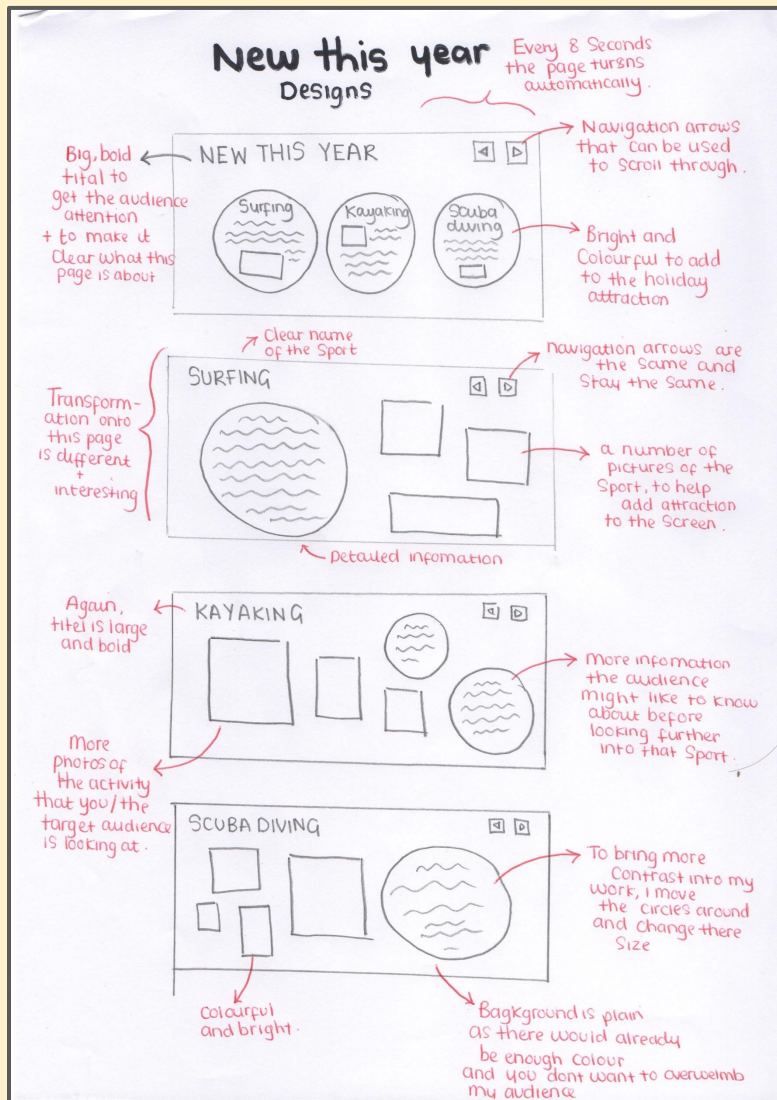 New this year
Designs
Every 8 Seconds
the page turns
automatically.
NEW THIS YEAR
Surfing
Kayaking
Scuba
diving
Big, bold
tital to
get the audience
attention
+ to make it
Clear what this
page is about
Navigation arrows
that can be used
to Scroll through.
Bright and
Colourful to add
to the holiday
attraction
Clear name
of the Sport
SURFING
Transform-
ation onto
this page
is different
+
interesting
navigation arrows are
the Same and
Stay the Same.
a number of
pictures of the
Sport, to help
add attraction
to the Screen.
Detailed infomation
Again,
titel is large
and bold
KAYAKING
More infomation
the audience
might like to know
about before
looking further
into that Sport.
More
photos of
the activity
that you/the
target audience
is looking at.
SCUBA DIVING
To bring more
Contrast into my
work, I move
the circles around
and change there
Size
Colourful
and bright.
Bagkground is plain
as there would already
be enough colour
and you dont want to overwelmb
my audience